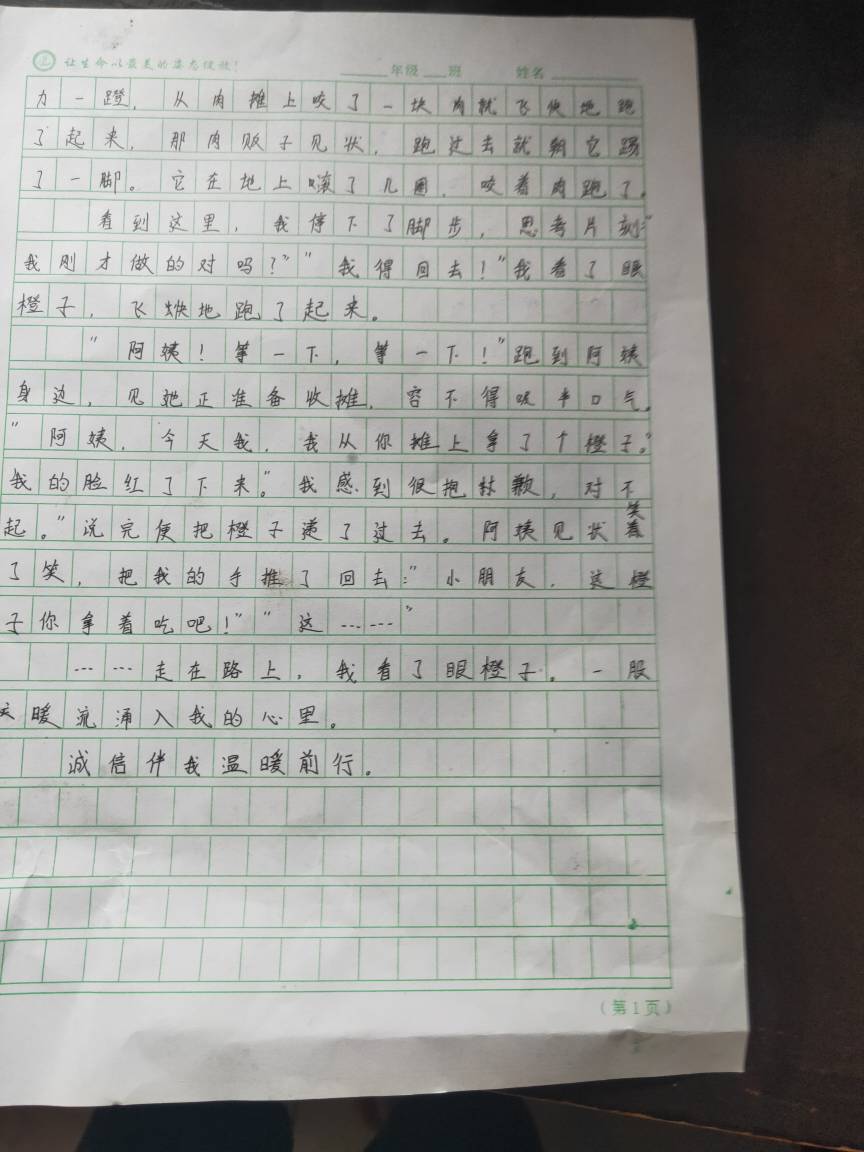 让生命以最美的姿态绽放!
年级 班 姓名
力一蹬，从肉摊上咬了一块肉就飞快地跑
了起来，那肉贩子见状，跑过去就朝它踢
了一脚。它在地上滚了几圈，咬着肉跑了。
看到这里，我停下了脚步，思考片刻：“
我刚才做的对吗？”“我得回去！”我看了眼
橙子，飞快地跑了起来。
“阿姨！等一下，等一下！”跑到阿姨
身边，见她正准备收摊，容不得吸半口气。
“阿姨，今天我，我从你摊上拿了个橙子。”
我的脸红了下来。“我感到很抱歉，对不
起。”说完便把橙子递了过去。阿姨见状笑着
了笑，把我的手推了回去：“小朋友，这橙
子你拿着吃吧！”“这……”
……走在路上，我看了眼橙子。一股
暖流涌入我的心里。
诚信伴我温暖前行。
（第1页）